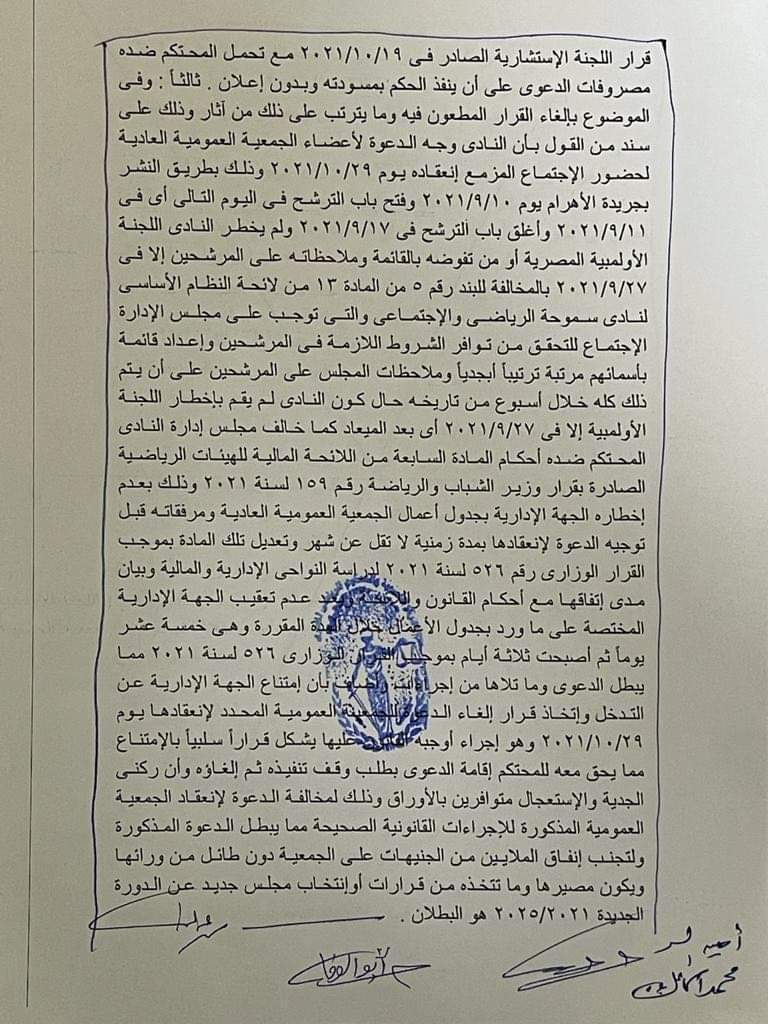 قرار اللجنة الإستشارية الصادر فى ٢٠٢١/١٠/١٩ مع تحمل المحتكم ضده
مصروفات الدعوى على أن ينفذ الحكم بمسودته وبدون إعلان . ثالثاً : وفى
الموضوع بإلغاء القرار المطعون فيه وما يترتب على ذلك من آثار وذلك على
سند من القول بأن النادى وجه الدعوة لأعضاء الجمعية العمومية العادية
لحضور الإجتماع المزمع إنعقاده يوم ٢٠٢١/١٠/٢٩ وذلك بطريق النشر
بجريدة الأهرام يوم ٢٠٢١/٩/١٠ وفتح باب الترشح فى اليوم التالى أى فى
٢٠٢١/٩/١١ وأغلق باب الترشح فى ٢٠٢١/٩/١٧ ولم يخطر النادى اللجنة
الأولمبية المصرية أو من تفوضه بالقائمة وملاحظاته على المرشحين إلا فى
٢٠٢١/٩/٢٧ بالمخالفة للبند رقم ٥ من المادة ١٣ من لائحة النظام الأساسى
لنادى سموحة الرياضى والإجتماعى والتى توجب على مجلس الإدارة
الإجتماع للتحقق من توافر الشروط اللازمة فى المرشحين وإعداد قائمة
بأسمائهم مرتبة ترتيباً أبجدياً وملاحظات المجلس على المرشحين على أن يتم
ذلك كله خلال أسبوع من تاريخه حال كون النادى لم يقم بإخطار اللجنة
الأولمبية إلا فى ٢٠٢١/٩/٢٧ أى بعد الميعاد كما خالف مجلس إدارة النادى
المحتكم ضده أحكام المادة السابعة من اللائحة المالية للهيئات الرياضية
الصادرة بقرار وزير الشباب والرياضة رقم ١٥٩ لسنة ٢٠٢١ وذلك بعدم
إخطاره الجهة الإدارية بجدول أعمال الجمعية العمومية العادية ومرفقاته قبل
توجيه الدعوة لإنعقادها بمدة زمنية لا تقل عن شهر وتعديل تلك المادة بموجب
القرار الوزارى رقم ٥٢٦ لسنة ٢٠٢١ لدراسة النواحى الإدارية والمالية وبيان
مدى إتفاقها مع أحكام القانون واللائحة وبعد عدم تعقيب الجهة الإدارية
المختصة على ما ورد بجدول الأعمال خلال المدة المقررة وهى خمسة عشر
يوماً ثم أصبحت ثلاثة أيام بموجب القرار الوزارى ٥٢٦ لسنة ٢٠٢١ مما
يبطل الدعوى وما تلاها من إجراءات وأضاف بأن إمتناع الجهة الإدارية عن
التدخل وإتخاذ قرار إلغاء الدعوة للجمعية العمومية المحدد لإنعقادها يوم
٢٠٢١/١٠/٢٩ وهو إجراء أوجبه القانون عليها يشكل قراراً سلبياً بالإمتناع
مما يحق معه للمحتكم إقامة الدعوى بطلب وقف تنفيذه ثم إلغاؤه وأن ركنى
الجدية والإستعجال متوافرين بالأوراق وذلك لمخالفة الدعوة لإنعقاد الجمعية
العمومية المذكورة للإجراءات القانونية الصحيحة مما يبطل الدعوة المذكورة
ولتجنب إنفاق الملايين من الجنيهات على الجمعية دون طائل من ورائها
ويكون مصيرها وما تتخذه من قرارات أوإنتخاب مجلس جديد عن الدورة
الجديدة ٢٠٢٥/٢٠٢١ هو البطلان .